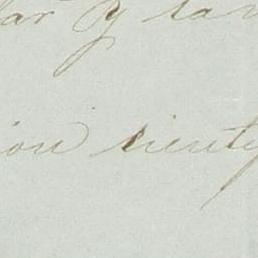 ar y la
ion siente